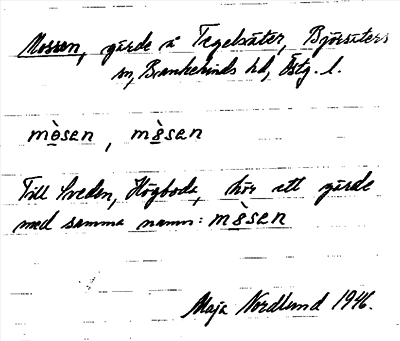 Mossen, gärde å Tegelsäter, Björsäters
sn, Bankekinds hd, Östg. l.
mò̱sen, mò̱sen
Till Sveden, Högboda, hör ett gärde
med samma namn: mò̱sen
Maja Nordlund 1946.